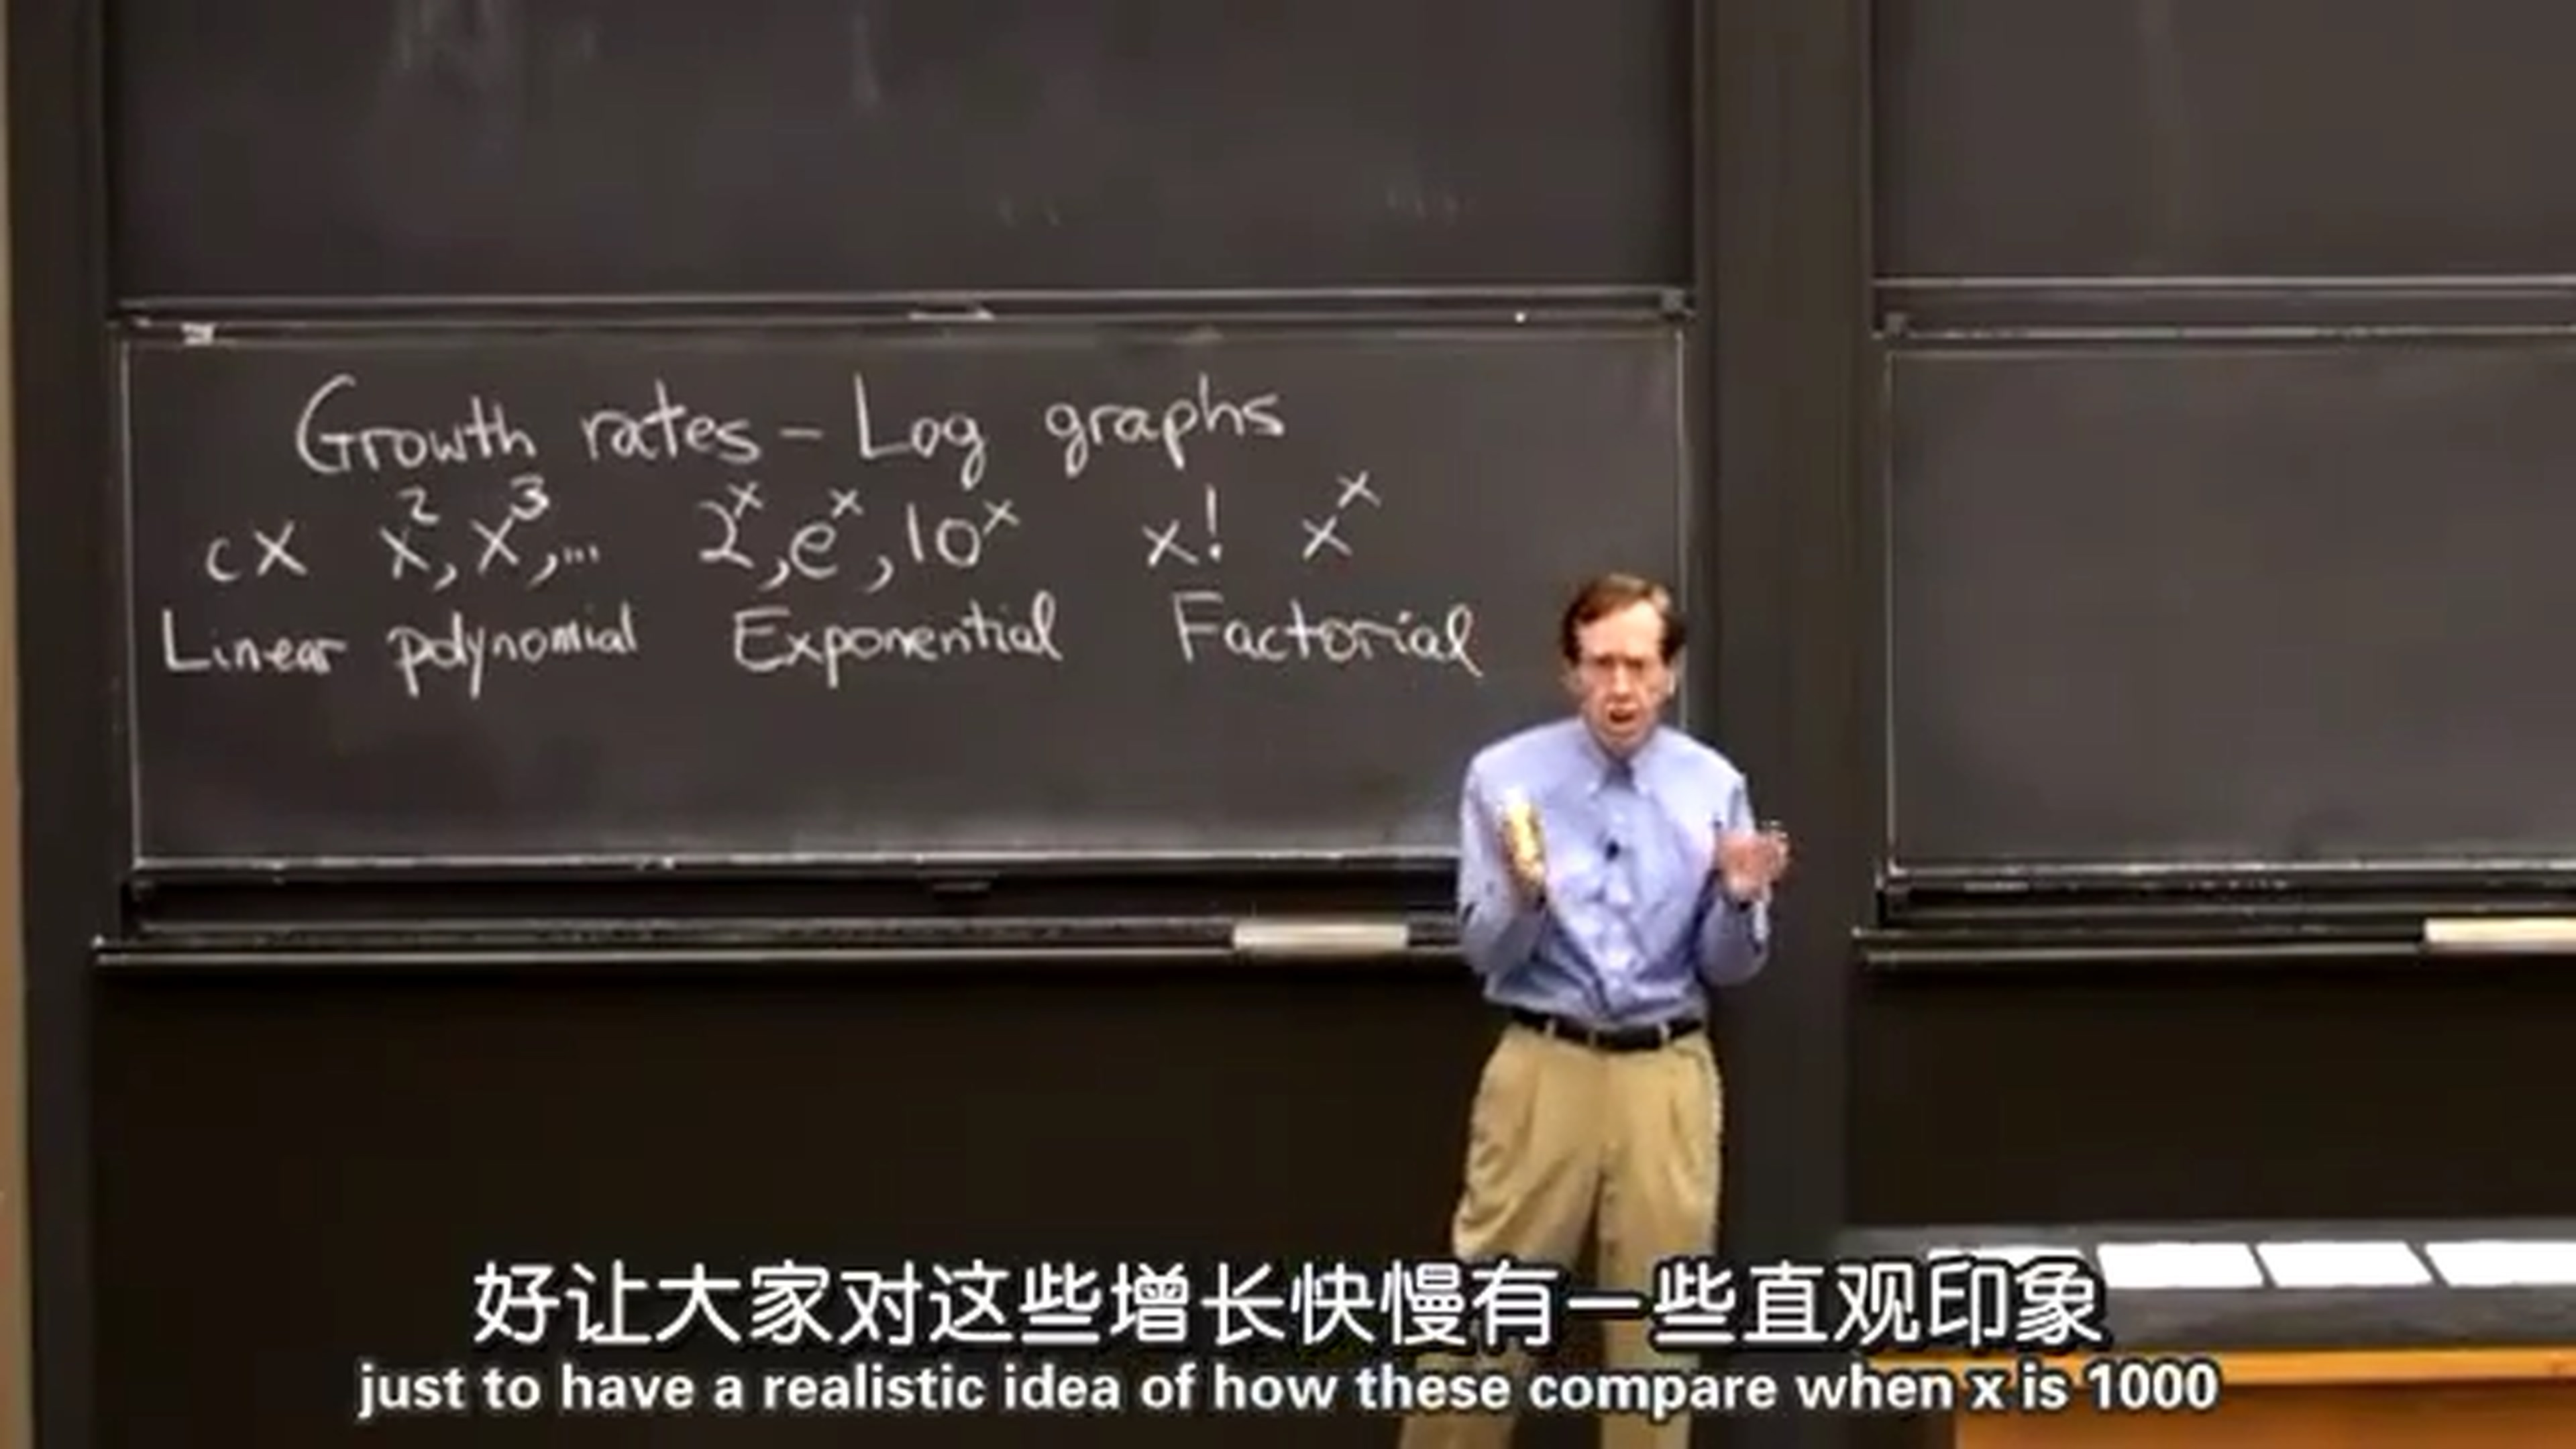 Growth rates – Log graphs
cx x², x³, ... 2ˣ, eˣ, 10ˣ x! xˣ
Linear polynomial Exponential Factorial
好让大家对这些增长快慢有一些直观印象
just to have a realistic idea of how these compare when x is 1000